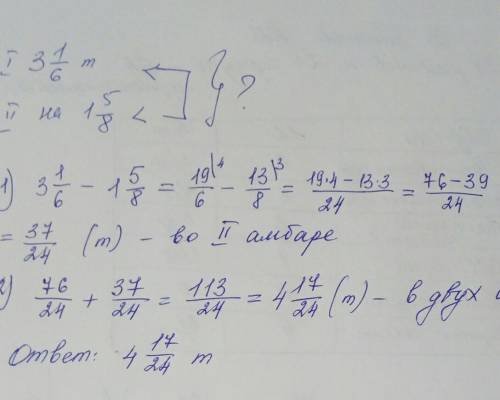 I 3 1/6 т
II на 1 5/8 < } ?
1) 3 1/6 - 1 5/8 = 19\4/6 - 13\3/8 = 19·4-13·3/24 = 76-39/24
= 37/24 (т) - во II амбаре
2) 76/24 + 37/24 = 113/24 = 4 17/24 (т) - в двух
Ответ: 4 17/24 т